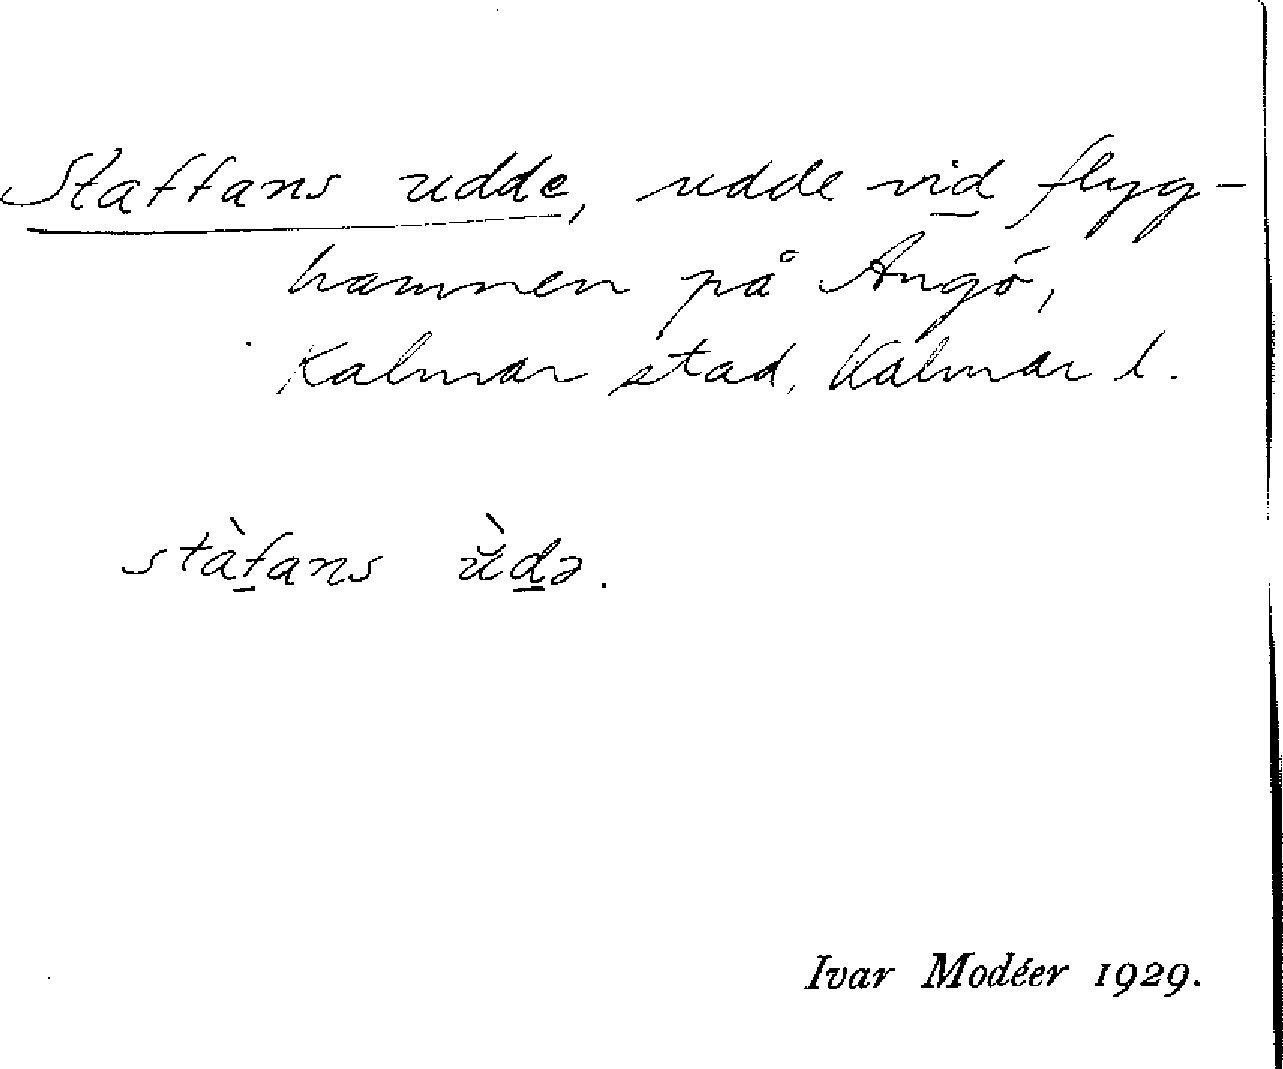 Staffans udde, udde vid flyg-
hamnen på Ängö,
Kalmar stad, Kalmar l.
stàf̲ans ùd̲ə.
Ivar Modéer 1929.